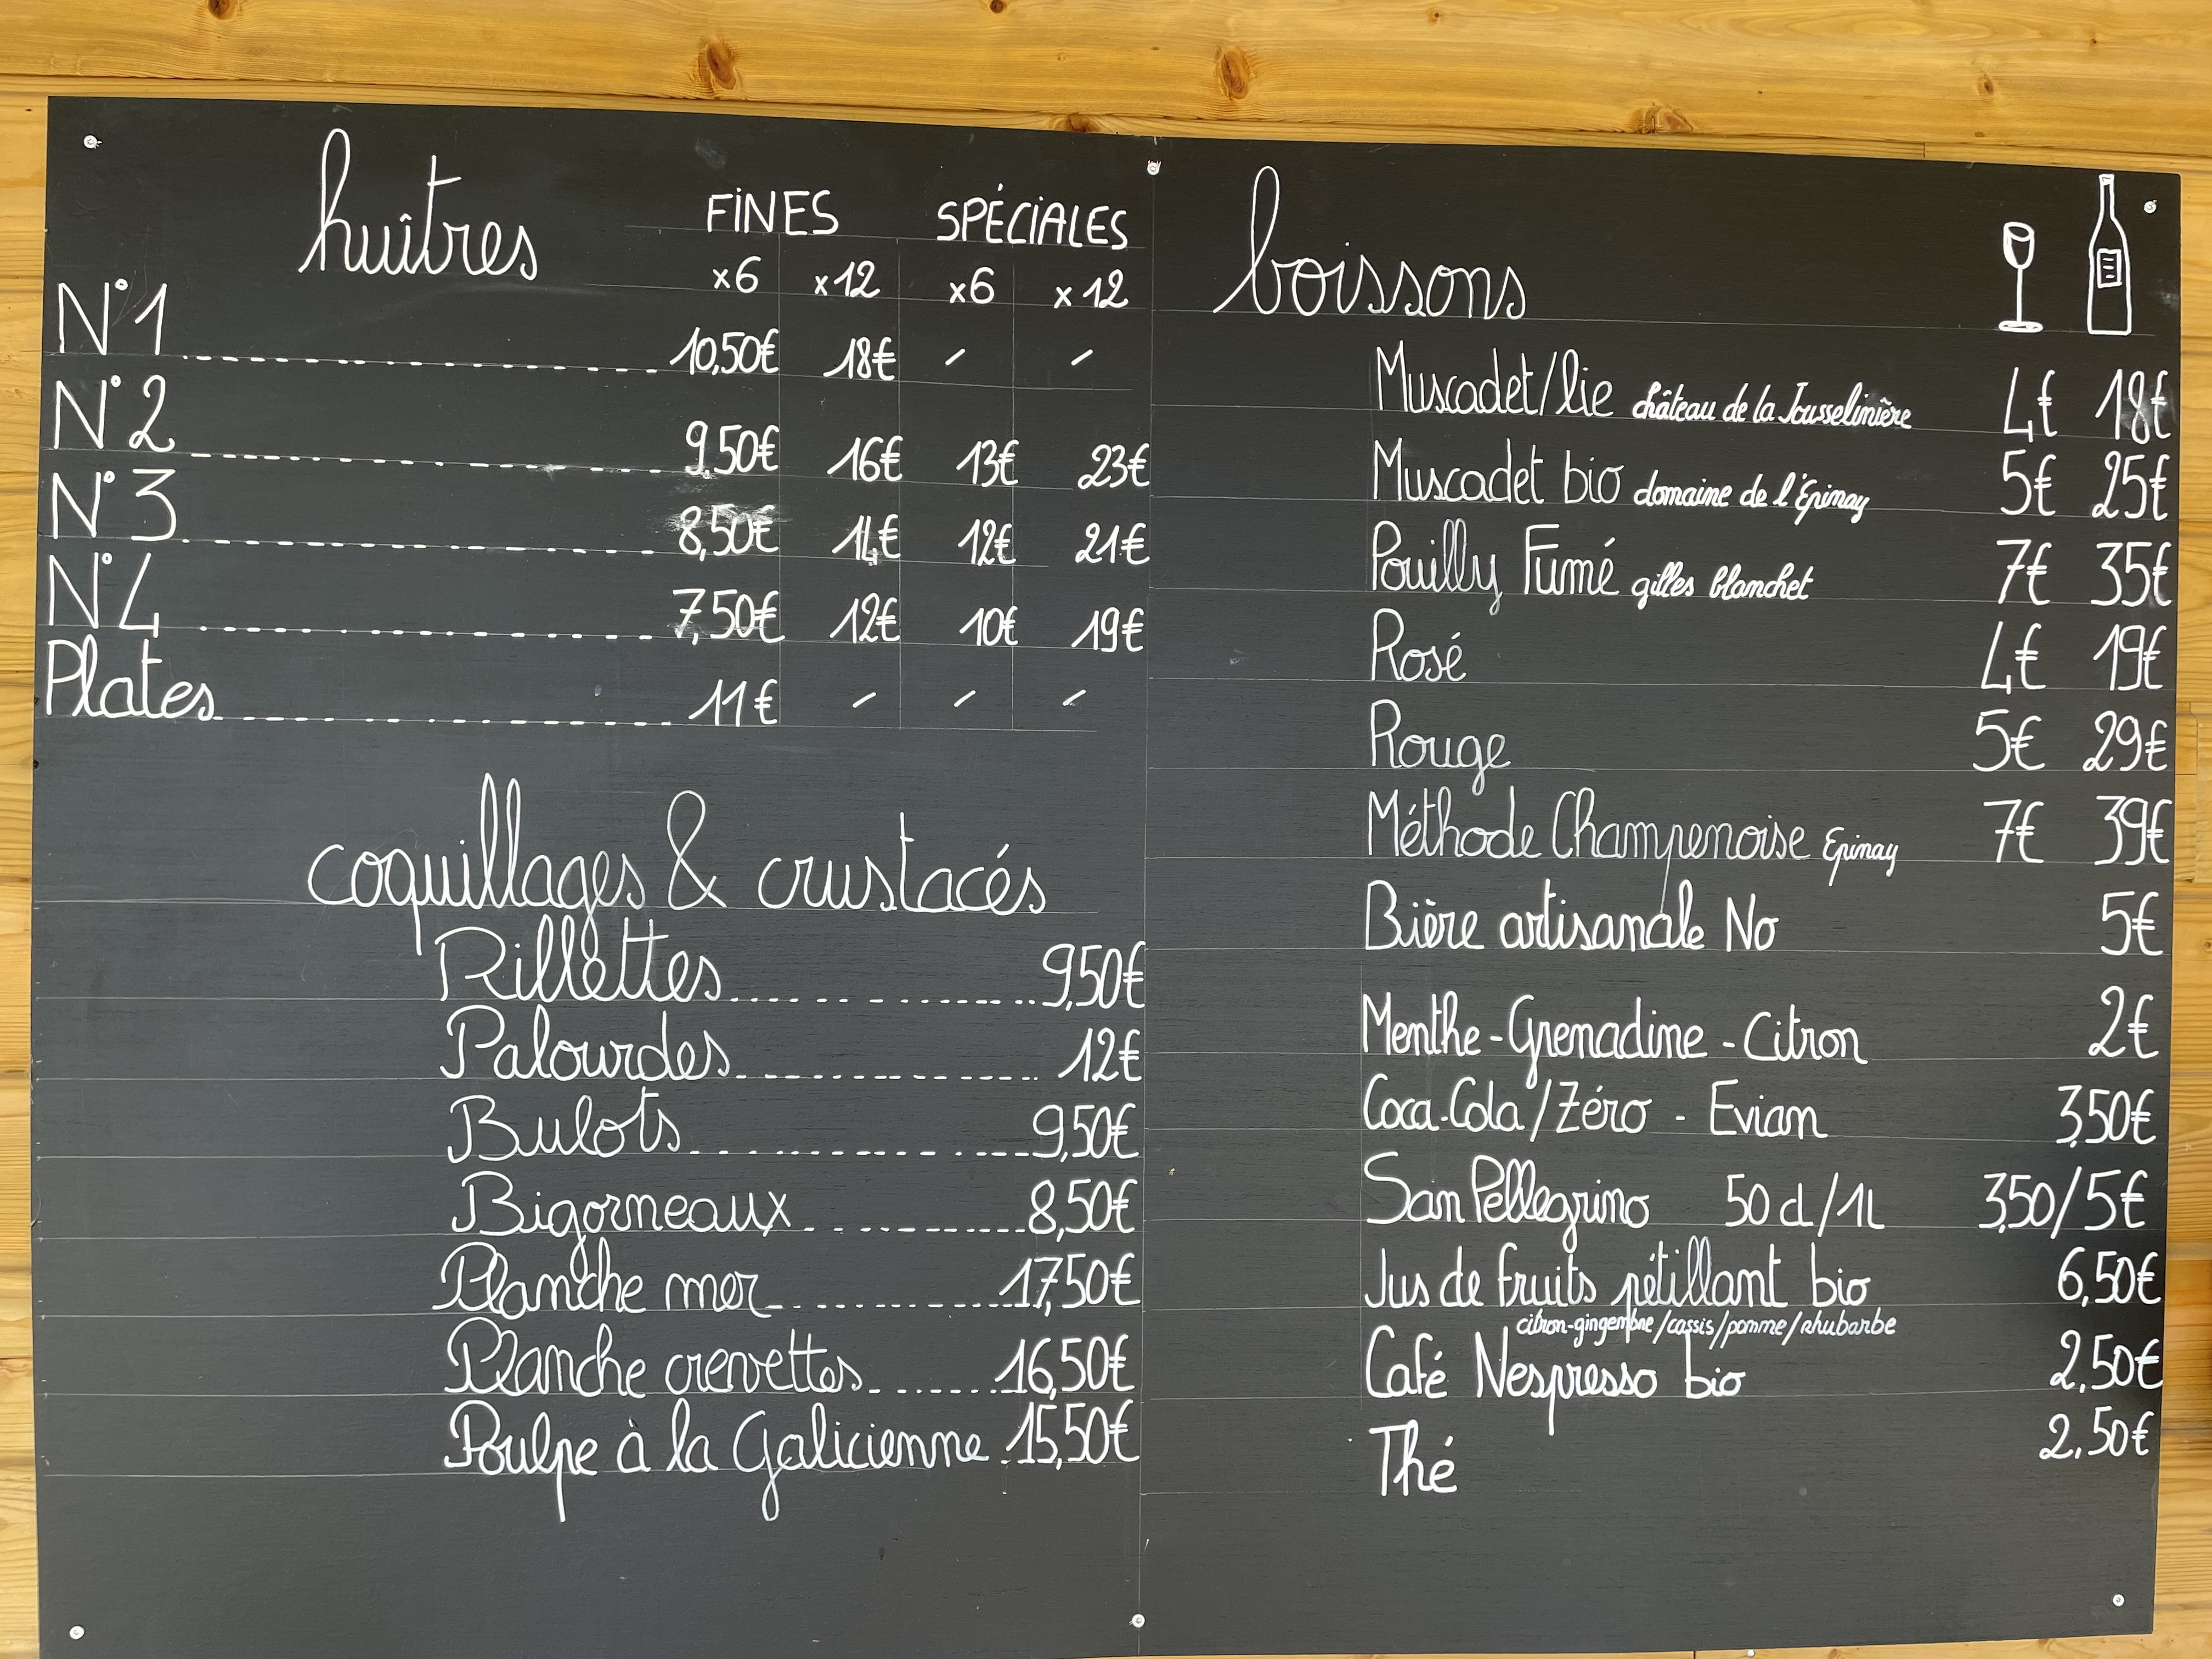 huîtres
FINES SPÉCIALES
x6 x12 x6 x12
N°1 10,50€ 18€ - -
N°2 9,50€ 16€ 13€ 23€
N°3 8,50€ 14€ 12€ 21€
N°4 7,50€ 12€ 10€ 19€
Plates 11€ - - -
coquillages & crustacés
Rillettes 9,50€
Palourdes 12€
Bulots 9,50€
Bigorneaux 8,50€
Planche mer 17,50€
Planche crevettes 16,50€
Poulpe à la Galicienne 15,50€
boissons
Muscadet/lie château de la Jousselinière 4€ 18€
Muscadet bio domaine de l'Épinay 5€ 25€
Pouilly Fumé gilles blanchet 7€ 35€
Rosé 4€ 19€
Rouge 5€ 29€
Méthode Champenoise Epinay 7€ 39€
Bière artisanale No 5€
Menthe-Grenadine-Citron 2€
Coca-Cola/Zéro - Evian 3,50€
San Pellegrino 50cl/1L 3,50/5€
Jus de fruits pétillant bio 6,50€
citron-gingembre/cassis/pomme/rhubarbe
Café Nespresso bio 2,50€
Thé 2,50€